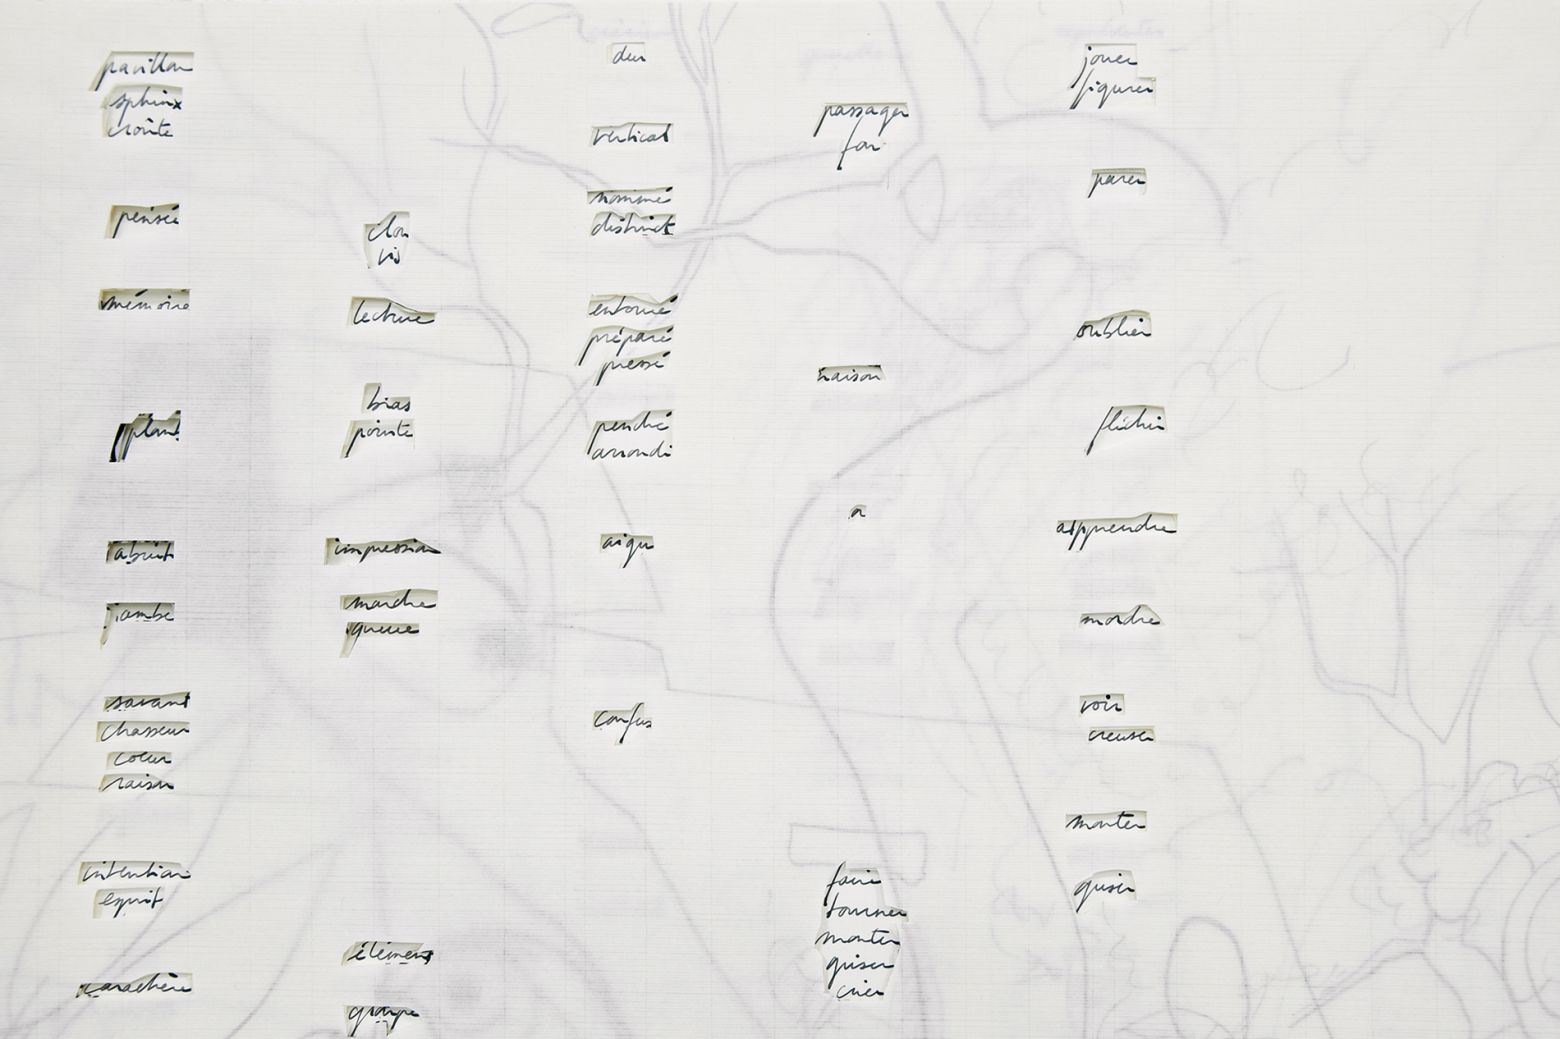 pavillon
sphinx
croûte
pensée
mémoire
plant
abrut
jambe
savant
chasseur
coeur
raison
intention
esprit
caractère
clou
vis
lecture
bias
pointe
impression
marche
queue
élément
groupe
dur
vertical
nommé
distinct
entouré
préparé
pressé
penché
arrondi
aigu
confus
passager
raison
a
faire
tourner
monter
griser
crier
jouer
figurer
parer
oublier
fléchir
apprendre
mordre
voir
creuser
monter
griser